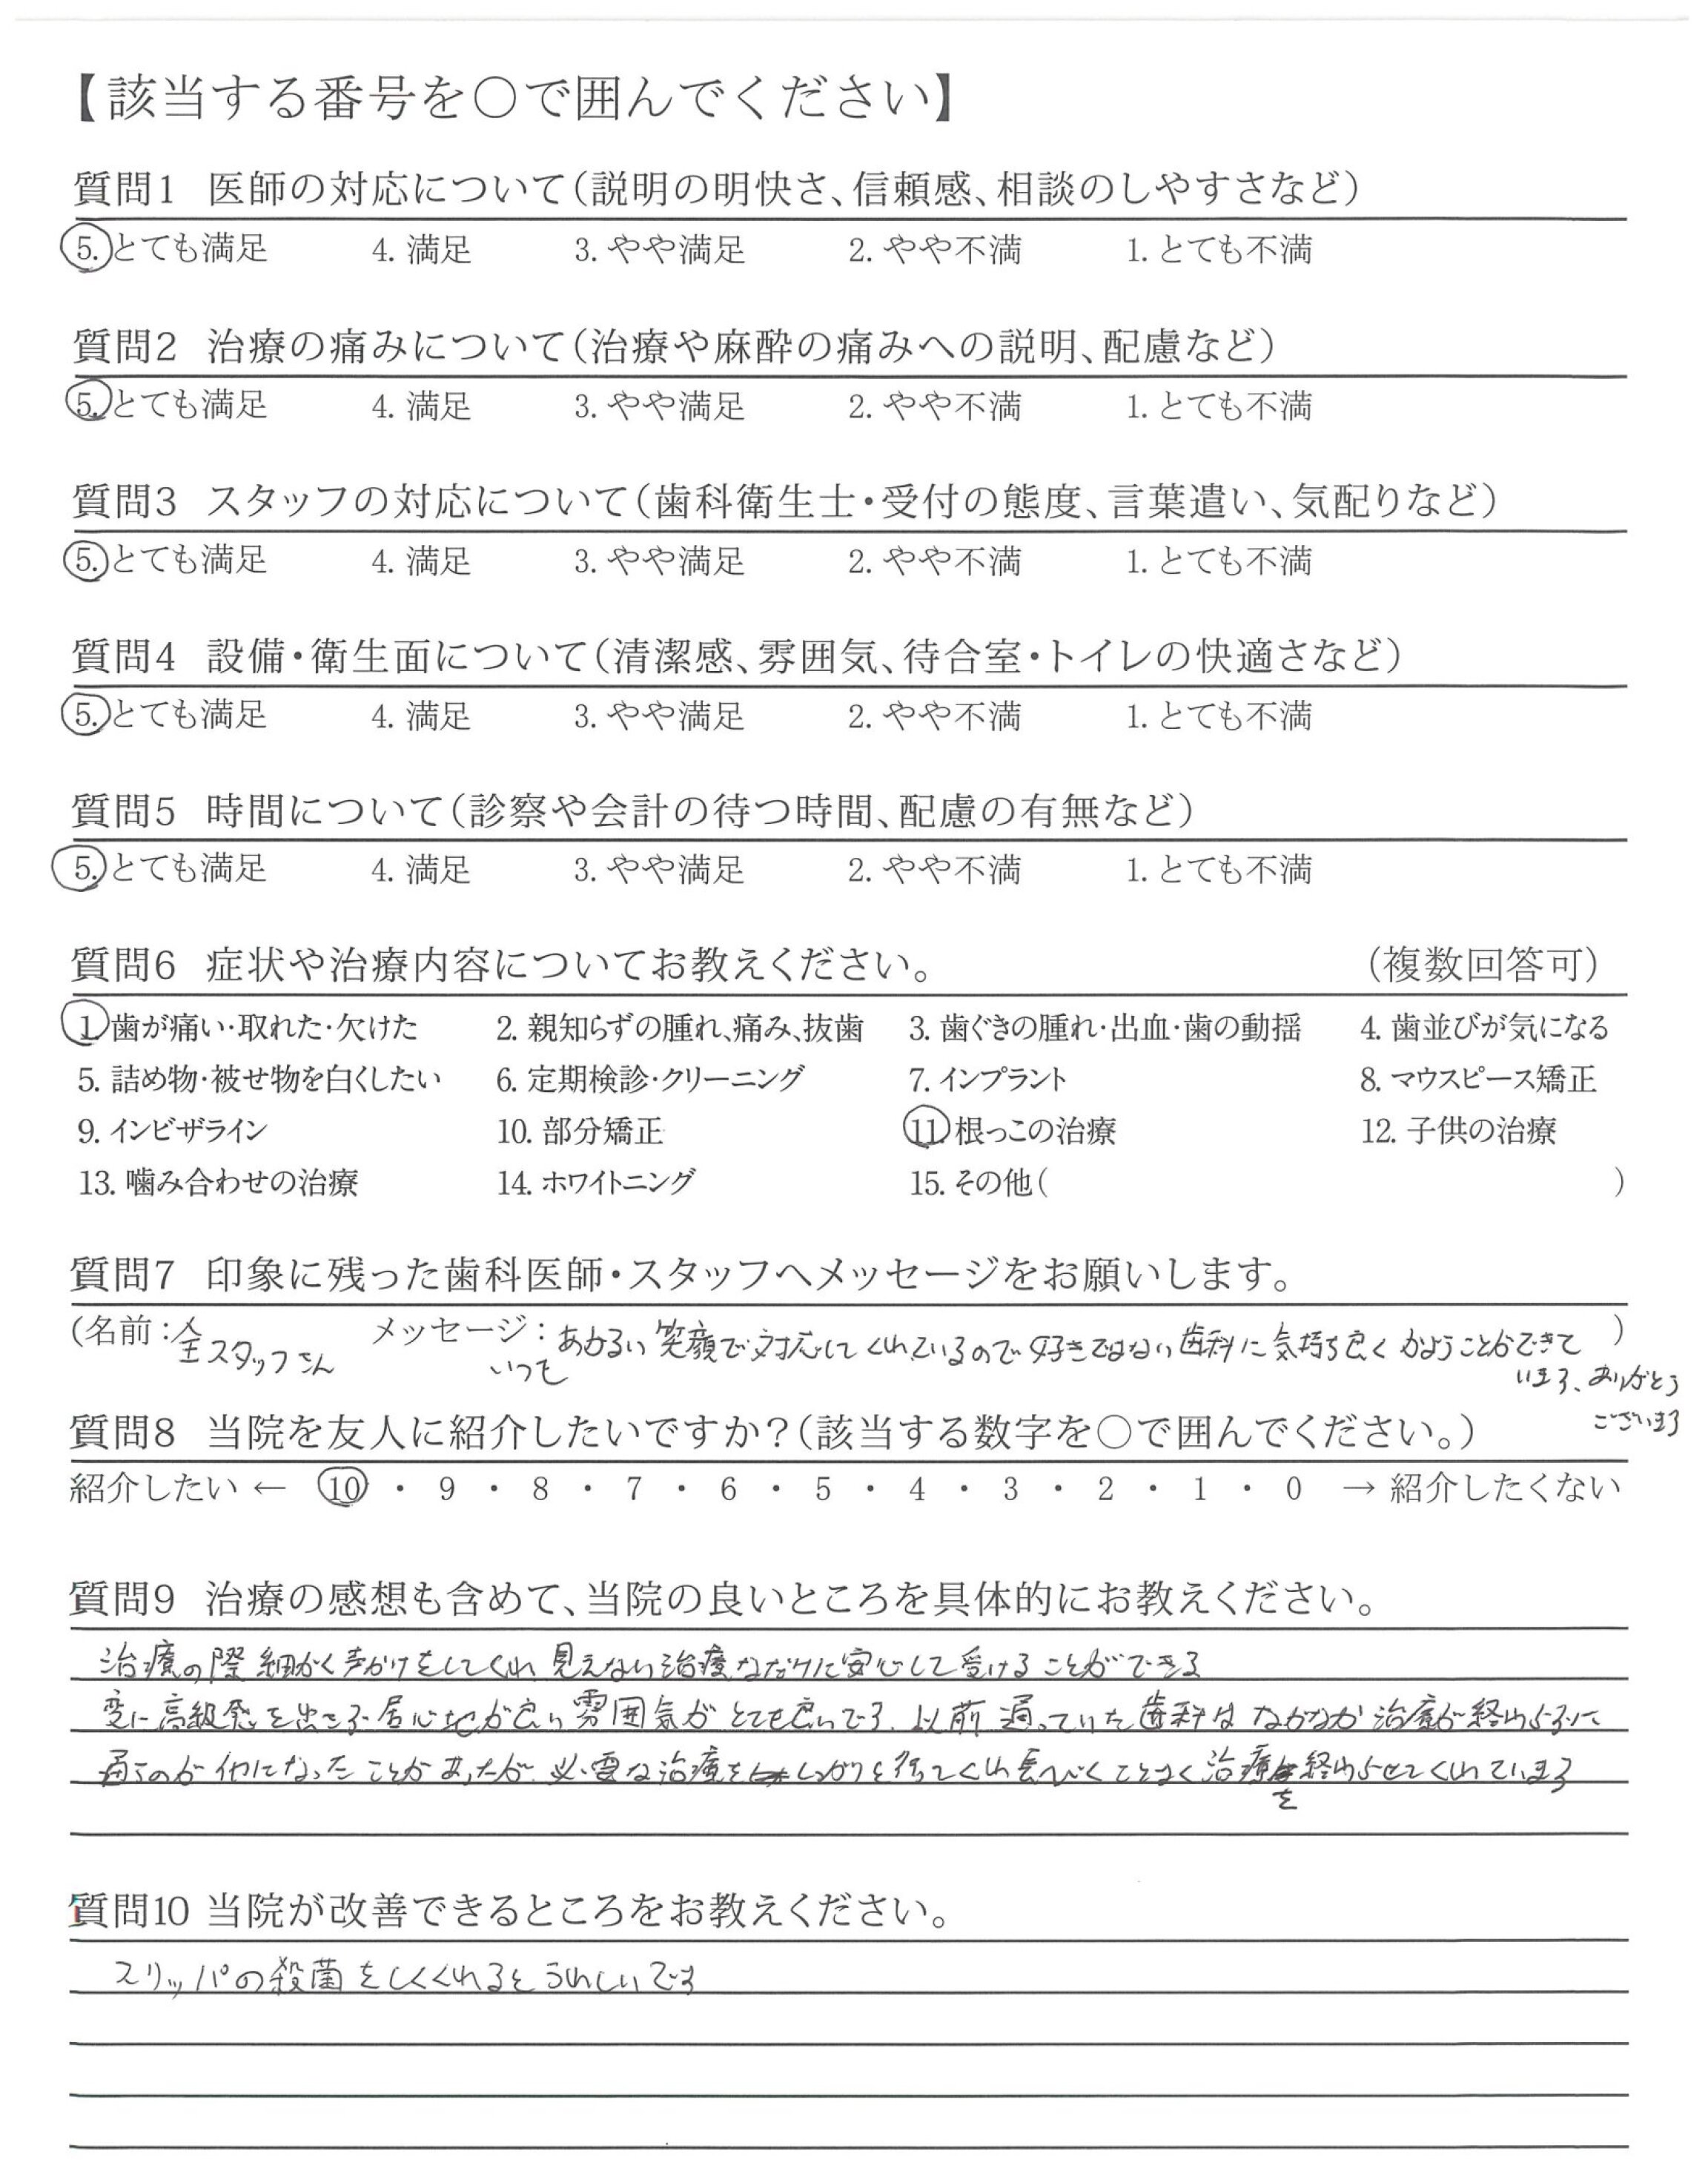 【該当する番号を○で囲んでください】
質問1 医師の対応について(説明の明快さ、信頼感、相談のしやすさなど)
5. とても満足 4. 満足 3. やや満足 2. やや不満 1. とても不満
質問2 治療の痛みについて(治療や麻酔の痛みへの説明、配慮など)
5. とても満足 4. 満足 3. やや満足 2. やや不満 1. とても不満
質問3 スタッフの対応について(歯科衛生士・受付の態度、言葉遣い、気配りなど)
5. とても満足 4. 満足 3. やや満足 2. やや不満 1. とても不満
質問4 設備・衛生面について(清潔感、雰囲気、待合室・トイレの快適さなど)
5. とても満足 4. 満足 3. やや満足 2. やや不満 1. とても不満
質問5 時間について(診察や会計の待つ時間、配慮の有無など)
5. とても満足 4. 満足 3. やや満足 2. やや不満 1. とても不満
質問6 症状や治療内容についてお教えください。 (複数回答可)
1. 歯が痛い・取れた・欠けた 2. 親知らずの腫れ、痛み、抜歯 3. 歯ぐきの腫れ・出血・歯の動揺 4. 歯並びが気になる
5. 詰め物・被せ物を白くしたい 6. 定期検診・クリーニング 7. インプラント 8. マウスピース矯正
9. インビザライン 10. 部分矯正 11. 根っこの治療 12. 子供の治療
13. 噛み合わせの治療 14. ホワイトニング 15. その他( )
質問7 印象に残った歯科医師・スタッフへメッセージをお願いします。
(名前:全スタッフさん メッセージ:いつもあかるい笑顔で対応してくれているので好きではない歯科に気持ち良くかようことができて)
います、ありがとう
ございます
質問8 当院を友人に紹介したいですか?(該当する数字を○で囲んでください。)
紹介したい ← 10 ・ 9 ・ 8 ・ 7 ・ 6 ・ 5 ・ 4 ・ 3 ・ 2 ・ 1 ・ 0 → 紹介したくない
質問9 治療の感想も含めて、当院の良いところを具体的にお教えください。
治療の際細かく声かけをしてくれ見えない治療なだけに安心して受けることができる
変に高級感を出さず居心地が良い雰囲気がとても良いです、以前通っていた歯科はなかなか治療が終わらずに
通うのが の に なったことがあったが、必要な治療をしっかりと行ってくれ長びくことなく治療を終わらせてくれています
質問10 当院が改善できるところをお教えください。
スリッパの殺菌をしてくれるとうれしいです